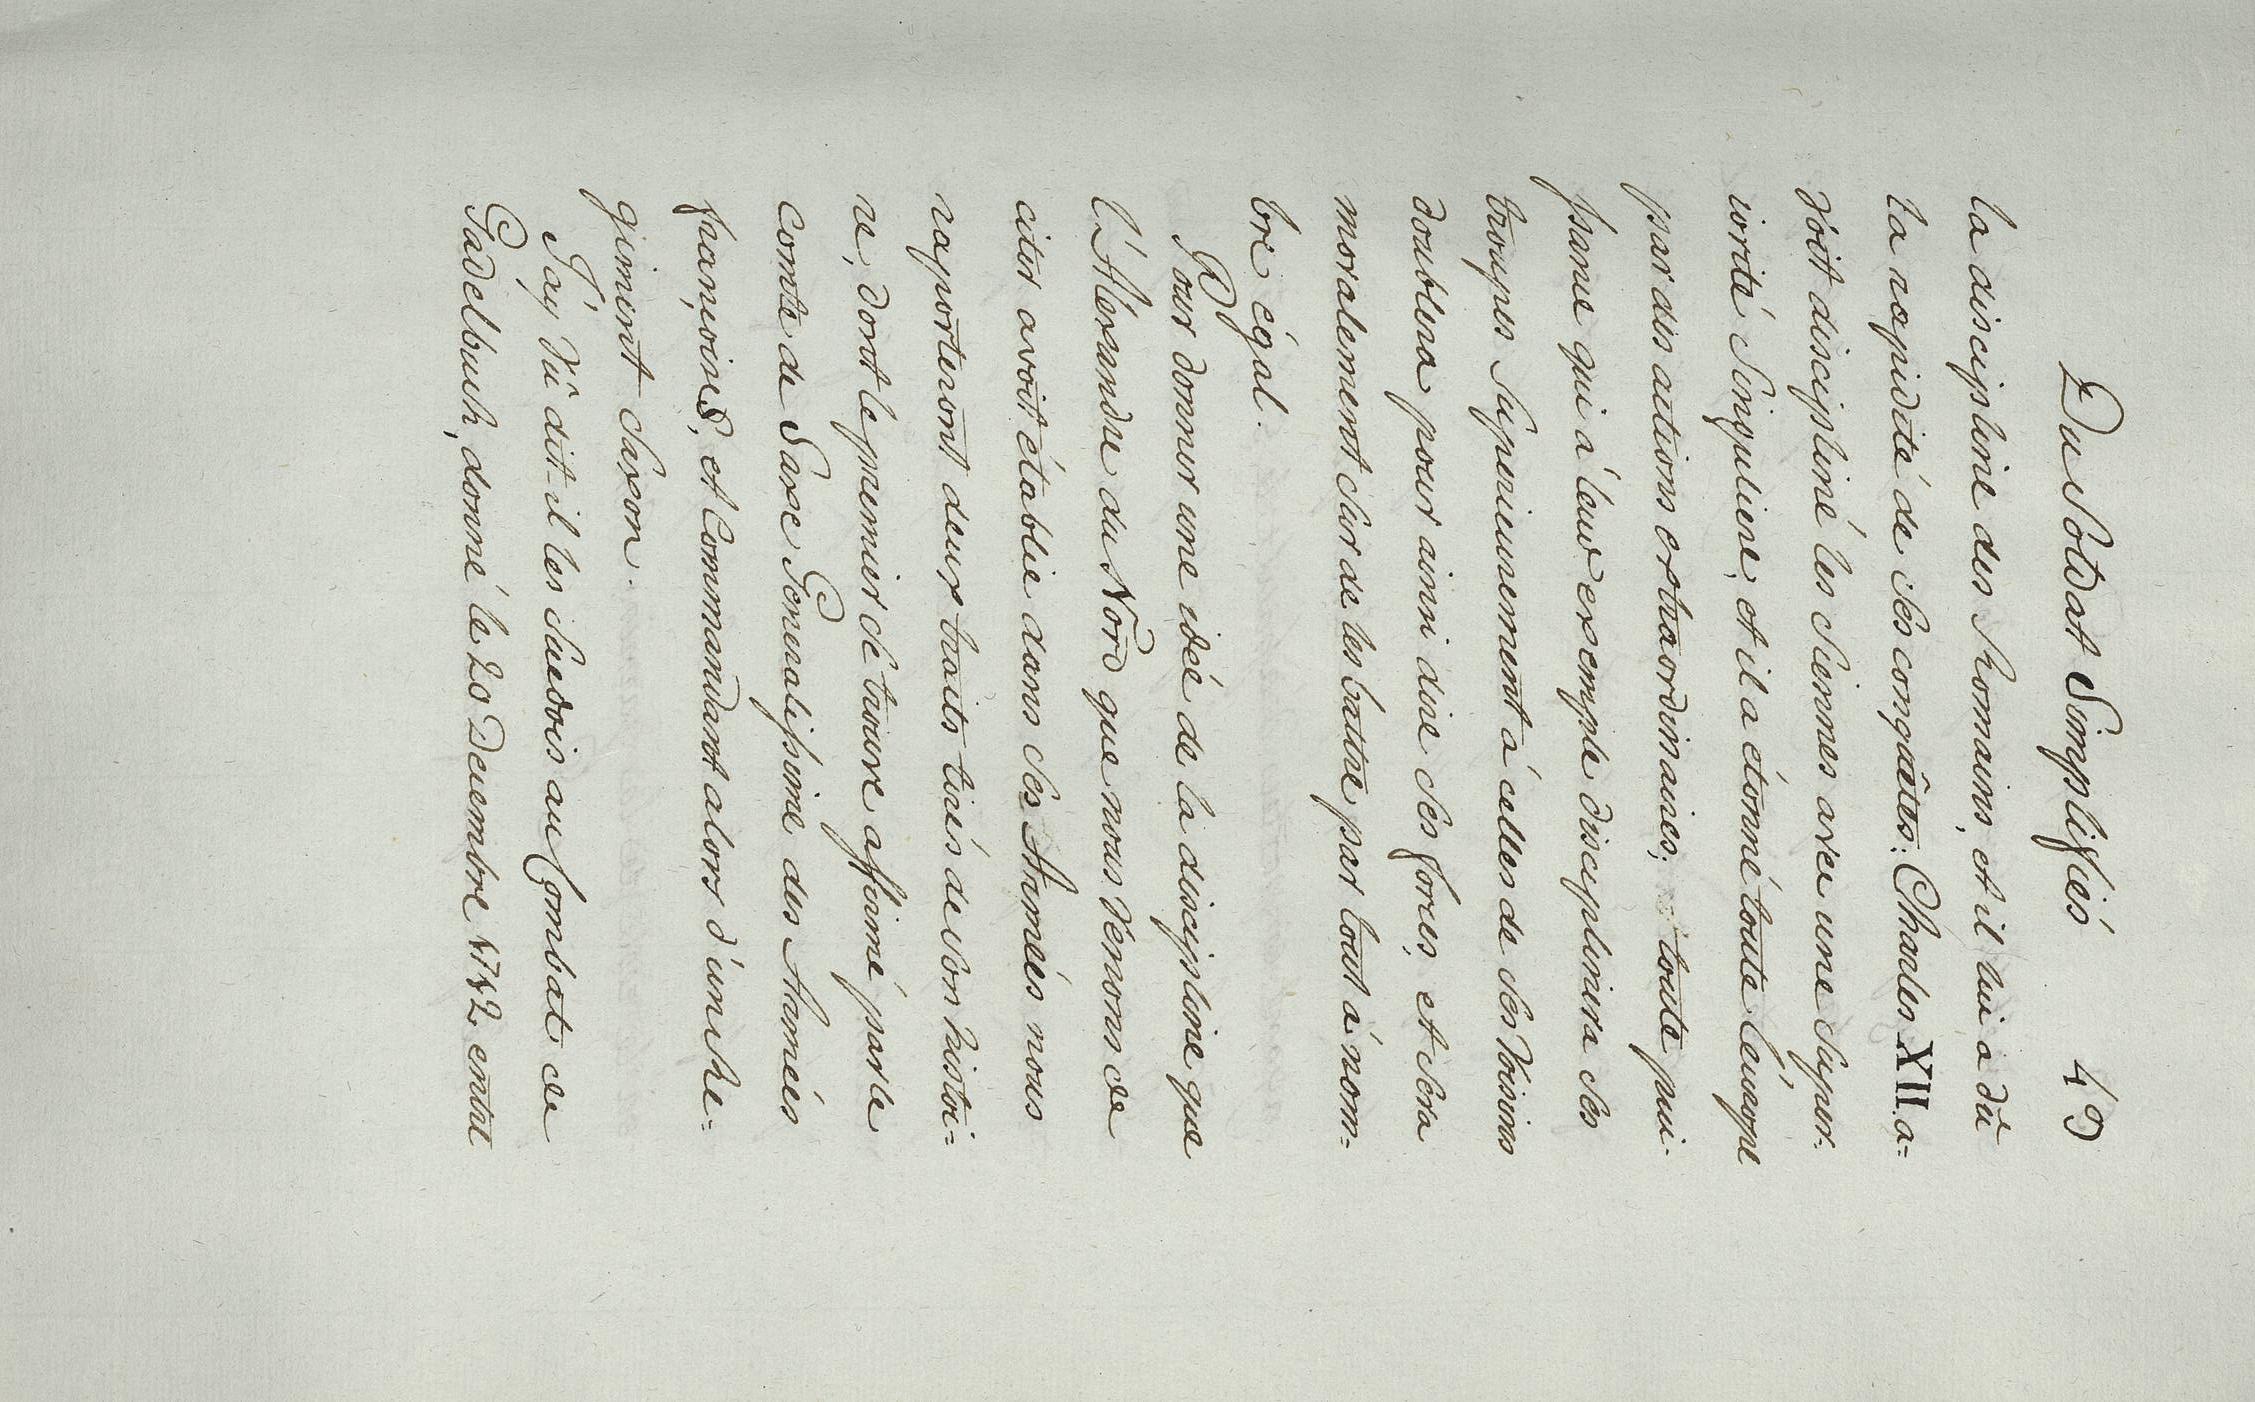 Du Soldat Simplifié 49
la discipline des Romains, et il lui a dû
la rapidité de ses conquêtes: Charles XII. a=
Voit discipliné les Siennes avec une Super-
iorité Singuliere, et il a étonné toute l'europe
par des actions extraordinaires; toute pui-
ssance qui à leur exemple disciplinera ses
troupes Superieurement à celles de ses Voisins
doublera pour ainsi dire ses forces, et sera
moralement sur de les battre par tout à nom=
bre égal.
Pour donner une idée de la discipline que
l'Alexandre du Nord que nous Venons de
citer avoit établie dans ses Armées nous
raporterons deux traits tirés de son histoi=
re, dont le premier se trouve affirmé par le
comte de Saxe Generalissime des Armées
françoises, et Commandant alors d'un Re=
giment Saxon.
J'ay Vû dit-il les Suedois au Combat de
Gadelbusk, donné le 20 Decembre 1712 entre